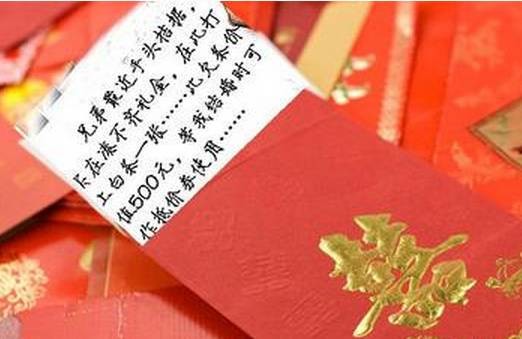 兄弟最近手头拮据,
在凑不齐礼金,在此打
上白条一张……此欠条价
值500元,等我结婚时可
作抵价券使用……